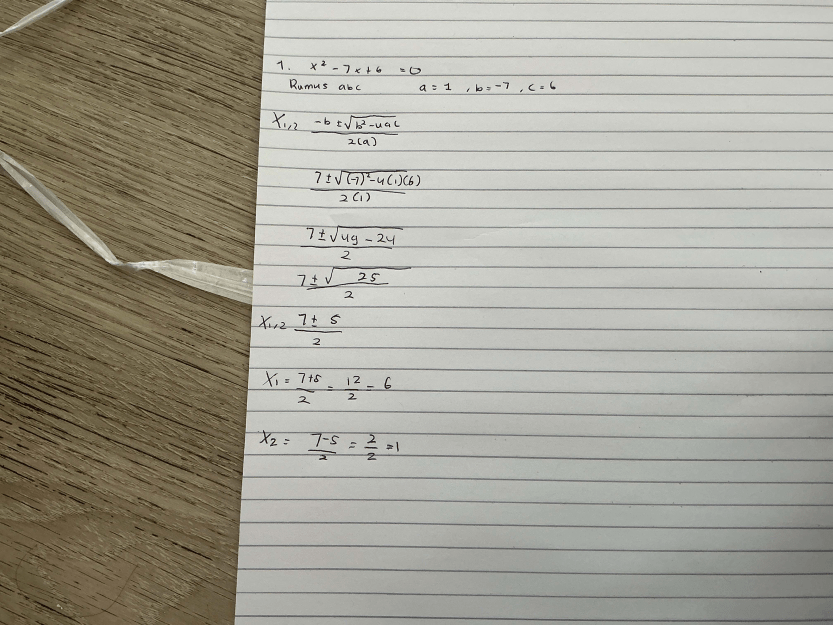 1. x² - 7x + 6 = 0
Rumus abc a = 1 , b = -7 , c = 6
X₁,₂ -b ± √b² - 4ac / 2(a)
7 ± √(-7)² - 4(1)(6) / 2(1)
7 ± √49 - 24 / 2
7 ± √25 / 2
X₁,₂ 7 ± 5 / 2
X₁ = 7+5 / 2 = 12 / 2 = 6
X₂ = 7-5 / 2 = 2 / 2 = 1